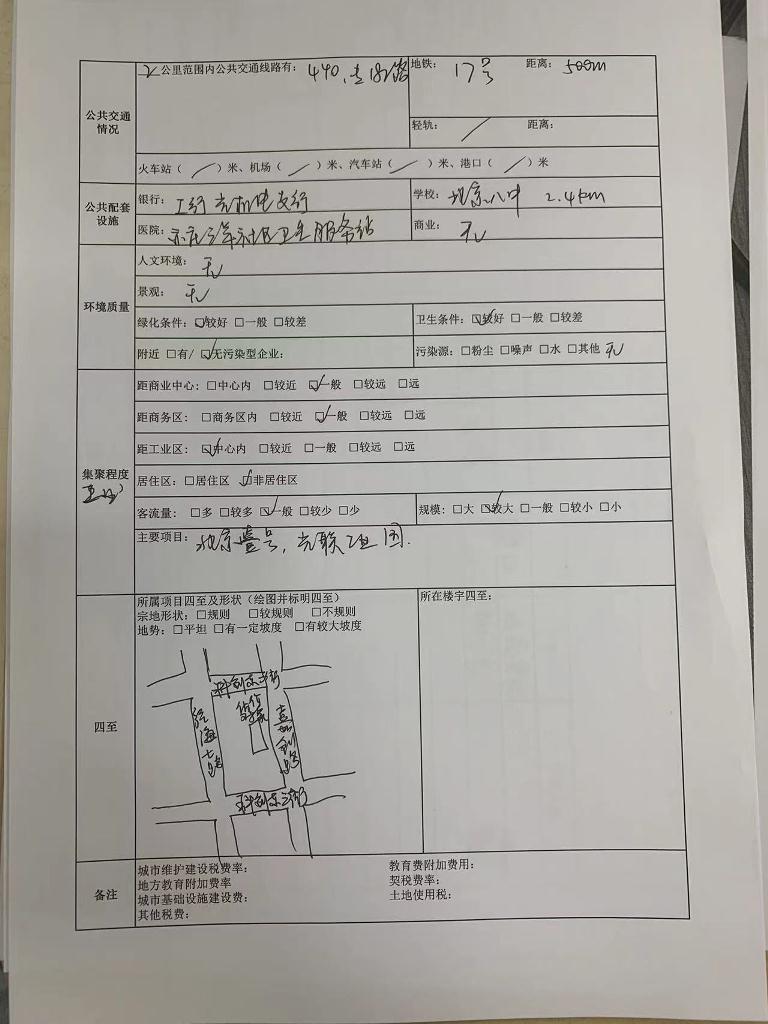 公共交通情况
2公里范围内公共交通线路有：440, 专182路
地铁： 17号 距离： 500m
轻轨： / 距离：
火车站（ / ）米、机场（ / ）米、汽车站（ / ）米、港口（ / ）米
公共配套设施
银行： 工行光机电支行
学校： 北京八中 2.4km
医院： 社区卫生服务站
商业： 无
环境质量
人文环境： 无
景观： 无
绿化条件：☑较好 □一般 □较差
卫生条件：☑较好 □一般 □较差
附近 □有/ ☑无污染型企业：
污染源：□粉尘 □噪声 □水 □其他 无
集聚程度
距商业中心：□中心内 □较近 ☑一般 □较远 □远
距商务区：□商务区内 □较近 ☑一般 □较远 □远
距工业区：☑中心内 □较近 □一般 □较远 □远
居住区：□居住区 ☑非居住区
客流量：□多 □较多 ☑一般 □较少 □少
规模：□大 ☑较大 □一般 □较小 □小
主要项目： 北京壹号, 光联工业园.
四至
所属项目四至及形状（绘图并标明四至）
宗地形状：□规则 □较规则 □不规则
地势：□平坦 □有一定坡度 □有较大坡度
所在楼宇四至：
经海七路
科创东三街
备注
城市维护建设税费率：
教育费附加费用：
地方教育附加费率
契税费率：
城市基础设施建设费：
土地使用税：
其他税费：